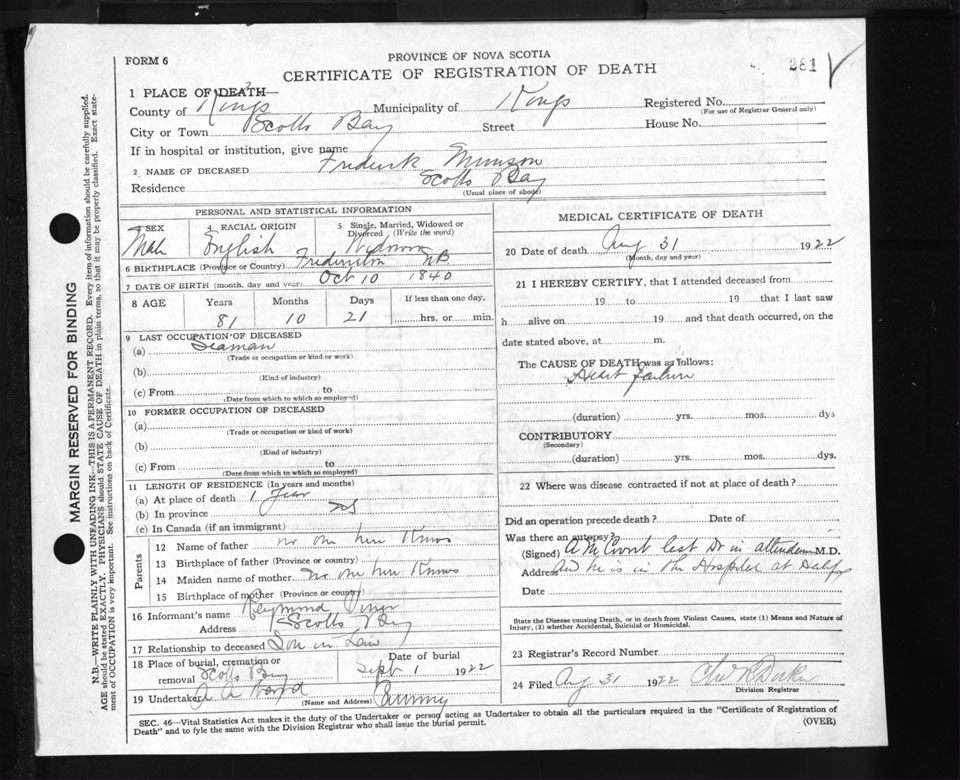 FORM 6
PROVINCE OF NOVA SCOTIA
CERTIFICATE OF REGISTRATION OF DEATH
281
1 PLACE OF DEATH—
County of Kings Municipality of Kings Registered No.
(For use of Registrar General only)
City or Town Scotts Bay Street House No.
If in hospital or institution, give name
2 NAME OF DECEASED Frederick Munson
Residence Scotts Bay
(Usual place of abode)
PERSONAL AND STATISTICAL INFORMATION
3 SEX Male
4 RACIAL ORIGIN English
5 Single, Married, Widowed or Divorced (Write the word)
6 BIRTHPLACE (Province or Country) Fredericton NB.
7 DATE OF BIRTH (month, day and year) Oct 10 1840
8 AGE Years Months Days If less than one day,
81 10 21 hrs. or min.
9 LAST OCCUPATION OF DECEASED
(a) Seaman
(Trade or occupation or kind or work)
(b)
(Kind of industry)
(c) From to
(Date from which to which so employed)
10 FORMER OCCUPATION OF DECEASED
(a)
(Trade or occupation or kind of work)
(b)
(Kind of industry)
(c) From to
(Date from which to which so employed)
11 LENGTH OF RESIDENCE (In years and months)
(a) At place of death 1 Year
(b) In province
(c) In Canada (if an immigrant)
Parents
12 Name of father no one here Knows
13 Birthplace of father (Province or country)
14 Maiden name of mother no one here Knows
15 Birthplace of mother (Province or country)
16 Informant's name Raymond
Address Scotts Bay
17 Relationship to deceased Son in Law
18 Place of burial, cremation or removal Scotts Bay
Date of burial Sept 1 1922
19 Undertaker
(Name and Address)
MEDICAL CERTIFICATE OF DEATH
20 Date of death Aug 31 1922
(Month, day and year)
21 I HEREBY CERTIFY, that I attended deceased from
19 to 19 that I last saw
h alive on 19 and that death occurred, on the
date stated above, at m.
The CAUSE OF DEATH was as follows:
Heart failure
(duration) yrs. mos. dys
CONTRIBUTORY
(Secondary)
(duration) yrs. mos. dys.
22 Where was disease contracted if not at place of death?
Did an operation precede death? Date of
Was there an autopsy?
(Signed) last Dr in attendance M.D.
Address and he is in the Hospital at Halifax
Date
State the Disease causing Death, or in death from Violent Causes, state (1) Means and Nature of
Injury, (2) whether Accidental, Suicidal or Homicidal.
23 Registrar's Record Number
24 Filed Aug 31 1922
Division Registrar
SEC. 46—Vital Statistics Act makes it the duty of the Undertaker or person acting as Undertaker to obtain all the particulars required in the "Certificate of Registration of
Death" and to fyle the same with the Division Registrar who shall issue the burial permit. (OVER)
MARGIN RESERVED FOR BINDING
N.B.—WRITE PLAINLY WITH UNFADING INK—THIS IS A PERMANENT RECORD. Every item of information should be carefully supplied.
AGE should be stated EXACTLY. PHYSICIANS should STATE CAUSE OF DEATH in plain terms, so that it may be properly classified. Exact state-
ment of OCCUPATION is very important. See instructions on back of Certificate.